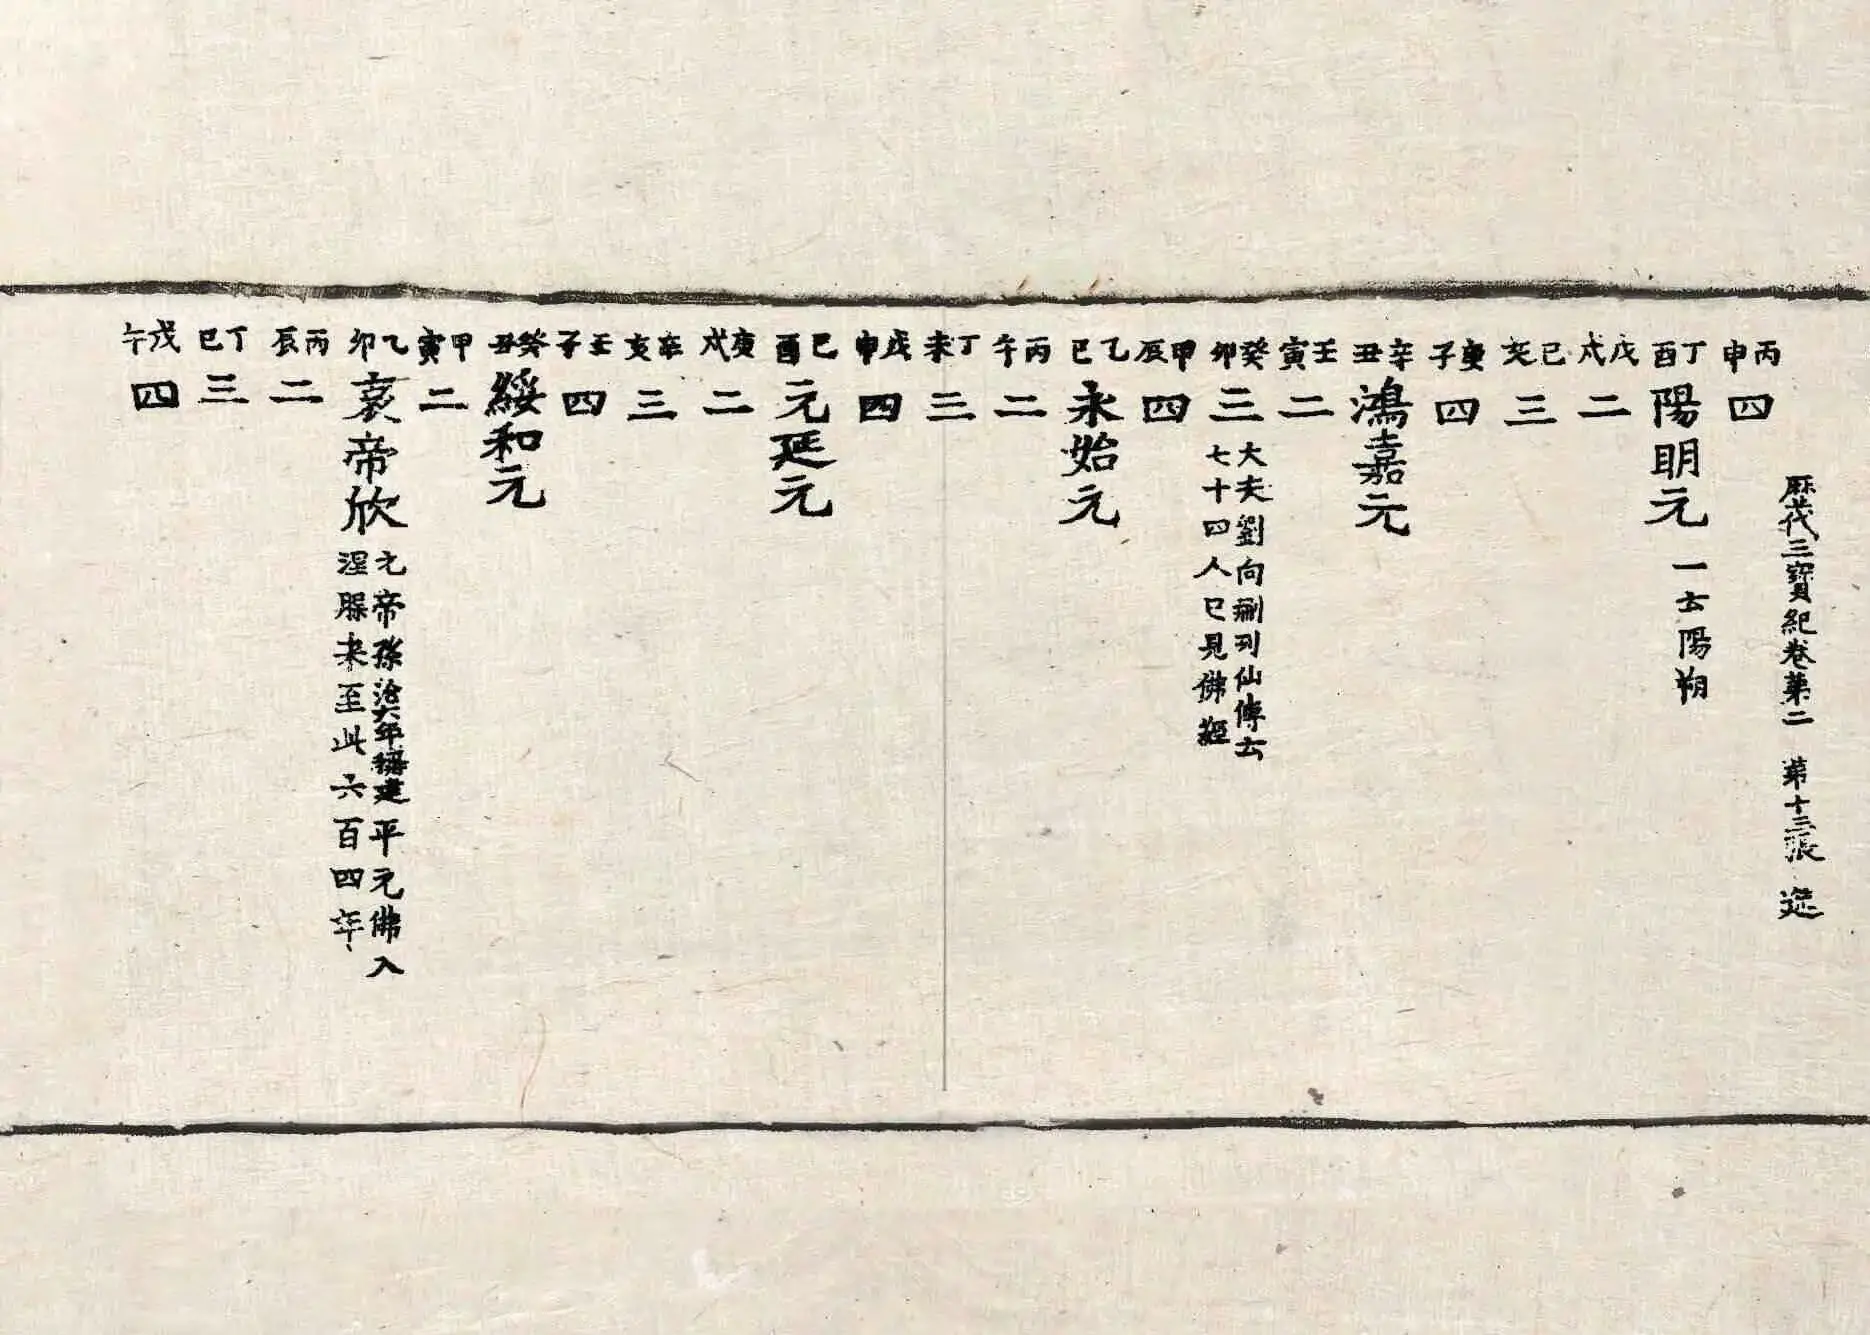 歷代三寶紀卷第二 第十三張
丙申 四
丁酉 陽明元 一云陽朔
戊戌 二
己亥 三
庚子 四
辛丑 鴻嘉元
壬寅 二
癸卯 三 大夫劉向刪列仙傳云
七十四人已見佛經
甲辰 四
乙巳 永始元
丙午 二
丁未 三
戊申 四
己酉 元延元
庚戌 二
辛亥 三
壬子 四
癸丑 綏和元
甲寅 二
乙卯 哀帝欣 元帝孫治六年建平元佛入
涅槃来至此六百四年
丙辰 二
丁巳 三
戊午 四